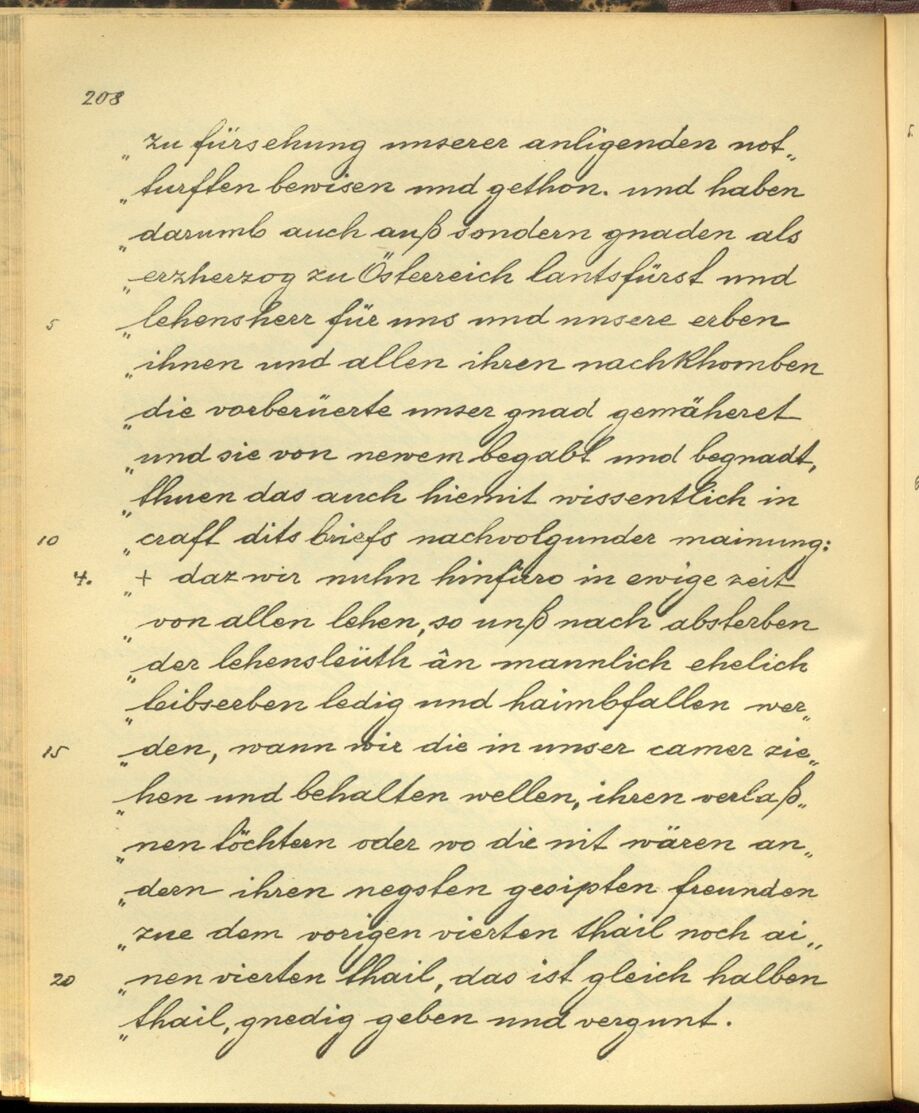 208
„zu fürsehung unserer anligenden not„
„turften bewisen und gethon. und haben
„darumb auch auß sondern gnaden als
„erzherzog zu Österreich lantsfürst und
5 „lehensherr für uns und unsere erben
„ihnen und allen ihren nachkhomben
„die vorberüerte unser gnad gemäheret
„und sie von newem begabt und begnadt,
„thuen das auch hiemit wissentlich in
10 „craft dits briefs nachvolgunder mainung:
4. „+ daz wir nuhn hinfüro in ewige zeit
„von allen lehen, so unß nach absterben
„der lehensleüth ân mannlich ehelich
„leibserben ledig und haimbfallen wer„
15 „den, wann wir die in unser camer zie„
„hen und behalten wellen, ihren verlaß„
„nen töchtern oder wo die nit wären an„
„dern ihren negsten gesipten freunden
„zue dem vorigen vierten thail noch ai„
20 „nen vierten thail, das ist gleich halben
„thail, gnedig geben und vergunt.